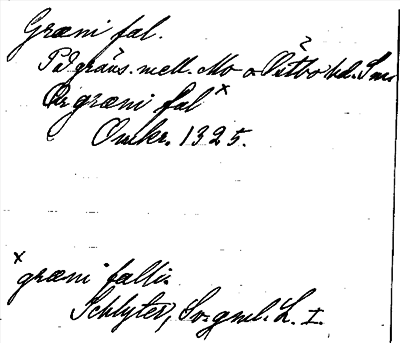 Græni fal.
På gräns. mell. Mo o Västbo hd. Smo
Or græni fal x
Omkr. 1325.
x græni fallir.
Schlyter, Sv. gml. L. I.